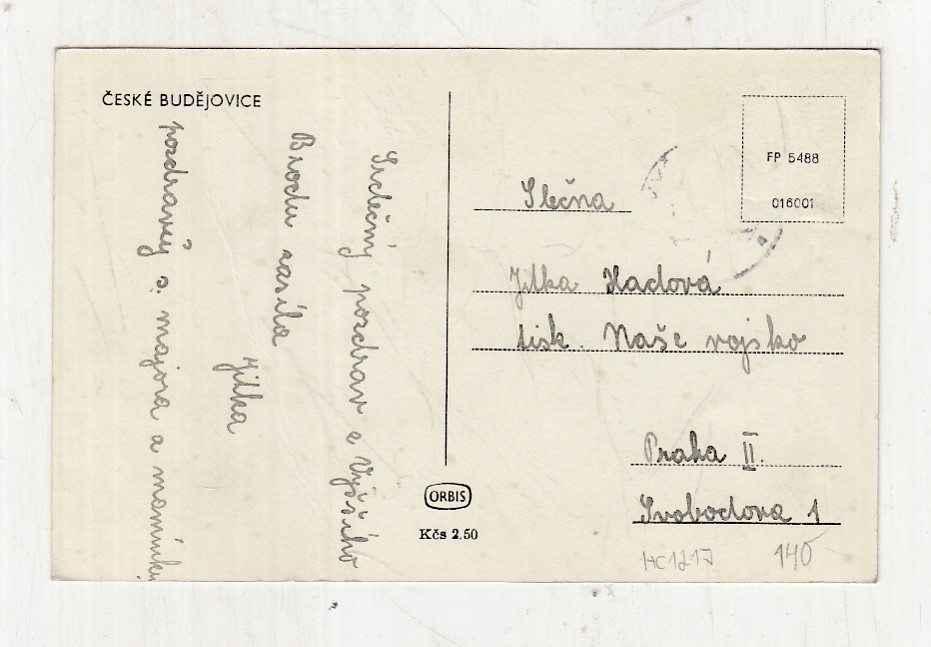 ČESKÉ BUDĚJOVICE
Srdečný pozdrav z Vyššího
Brodu zasílá
Jitka
pozdravuj s. majora a maminku
ORBIS
Kčs 2.50
FP 5488
016001
Slečna
Jitka Hadová
tisk. Naše vojsko
Praha II.
Svobodova 1
HC1217
140